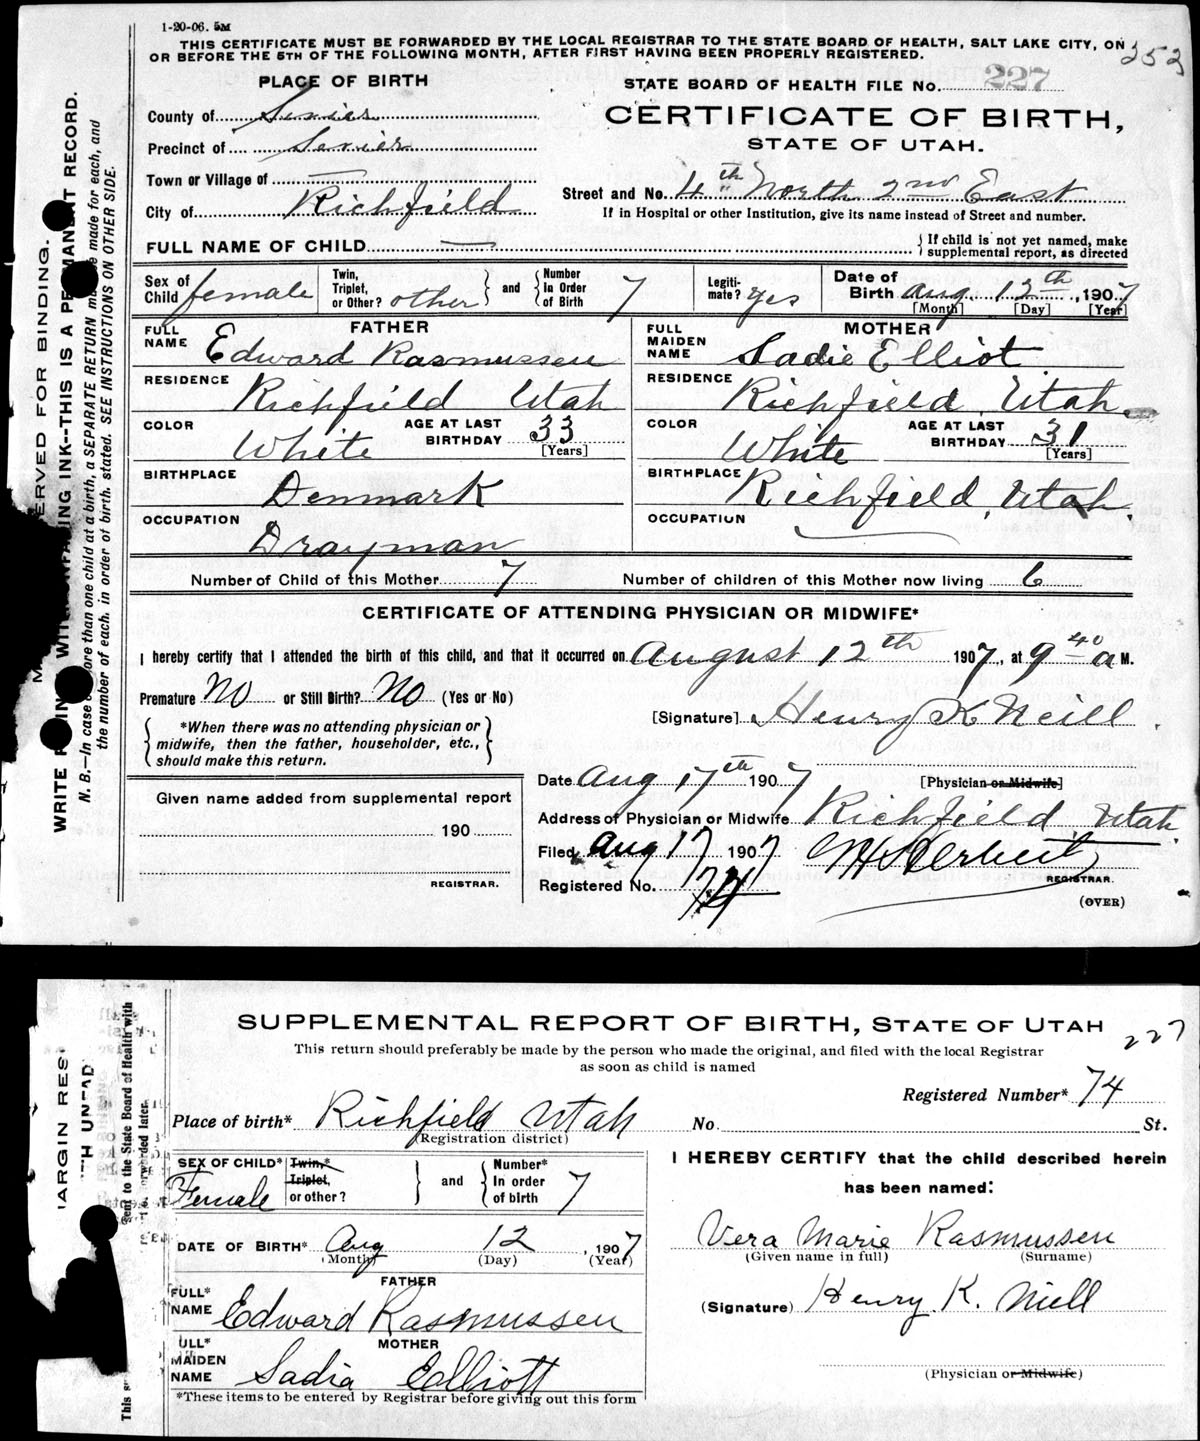 1-20-06. 5M
THIS CERTIFICATE MUST BE FORWARDED BY THE LOCAL REGISTRAR TO THE STATE BOARD OF HEALTH, SALT LAKE CITY, ON
OR BEFORE THE 5TH OF THE FOLLOWING MONTH, AFTER FIRST HAVING BEEN PROPERLY REGISTERED.
252
PLACE OF BIRTH
STATE BOARD OF HEALTH FILE No. 227
County of Sevier
CERTIFICATE OF BIRTH,
Precinct of Sevier
STATE OF UTAH.
Town or Village of —
City of Richfield
Street and No. 4th North 2nd East
If in Hospital or other Institution, give its name instead of Street and number.
FULL NAME OF CHILD — { If child is not yet named, make
supplemental report, as directed
Sex of Child female
Twin, Triplet, or Other? other } and { Number In Order of Birth 7
Legiti-mate? yes
Date of Birth Aug. 12th, 1907
[Month] [Day] [Year]
FATHER
FULL NAME Edward Rasmussen
RESIDENCE Richfield Utah
COLOR White AGE AT LAST BIRTHDAY 33 [Years]
BIRTHPLACE Denmark
OCCUPATION Drayman
MOTHER
FULL MAIDEN NAME Sadie Elliot
RESIDENCE Richfield, Utah.
COLOR White AGE AT LAST BIRTHDAY 31 [Years]
BIRTHPLACE Richfield, Utah.
OCCUPATION
Number of Child of this Mother 7 Number of children of this Mother now living 6
CERTIFICATE OF ATTENDING PHYSICIAN OR MIDWIFE*
I hereby certify that I attended the birth of this child, and that it occurred on August 12th 1907, at 9 40 a M.
Premature No or Still Birth? No (Yes or No)
{ *When there was no attending physician or
midwife, then the father, householder, etc.,
should make this return. }
[Signature] Henry K Neill
[Physician or Midwife]
Date Aug 17th 1907
Given name added from supplemental report
190
REGISTRAR.
Address of Physician or Midwife Richfield Utah
Filed Aug 17 1907
Registered No. 74
REGISTRAR.
(OVER)
RESERVED FOR BINDING.
THIS IS A PERMANENT RECORD.
N. B.—In case of more than one child at a birth, a SEPARATE RETURN must be made for each, and
the number of each, in order of birth, stated. SEE INSTRUCTIONS ON OTHER SIDE.
SUPPLEMENTAL REPORT OF BIRTH, STATE OF UTAH
227
This return should preferably be made by the person who made the original, and filed with the local Registrar
as soon as child is named
Registered Number* 74
Place of birth* Richfield Utah No. St.
(Registration district)
SEX OF CHILD* Female
Twin,* Triplet, or other? } and { Number* In order of birth 7
DATE OF BIRTH* Aug 12, 1907
(Month) (Day) (Year)
FATHER
FULL* NAME Edward Rasmussen
MOTHER
ULL* MAIDEN NAME Sadia Elliott
*These items to be entered by Registrar before giving out this form
I HEREBY CERTIFY that the child described herein
has been named:
Vera Marie Rasmussen
(Given name in full) (Surname)
(Signature) Henry K. Niell
(Physician or Midwife)
ARGIN RES
sent to the State Board of Health with